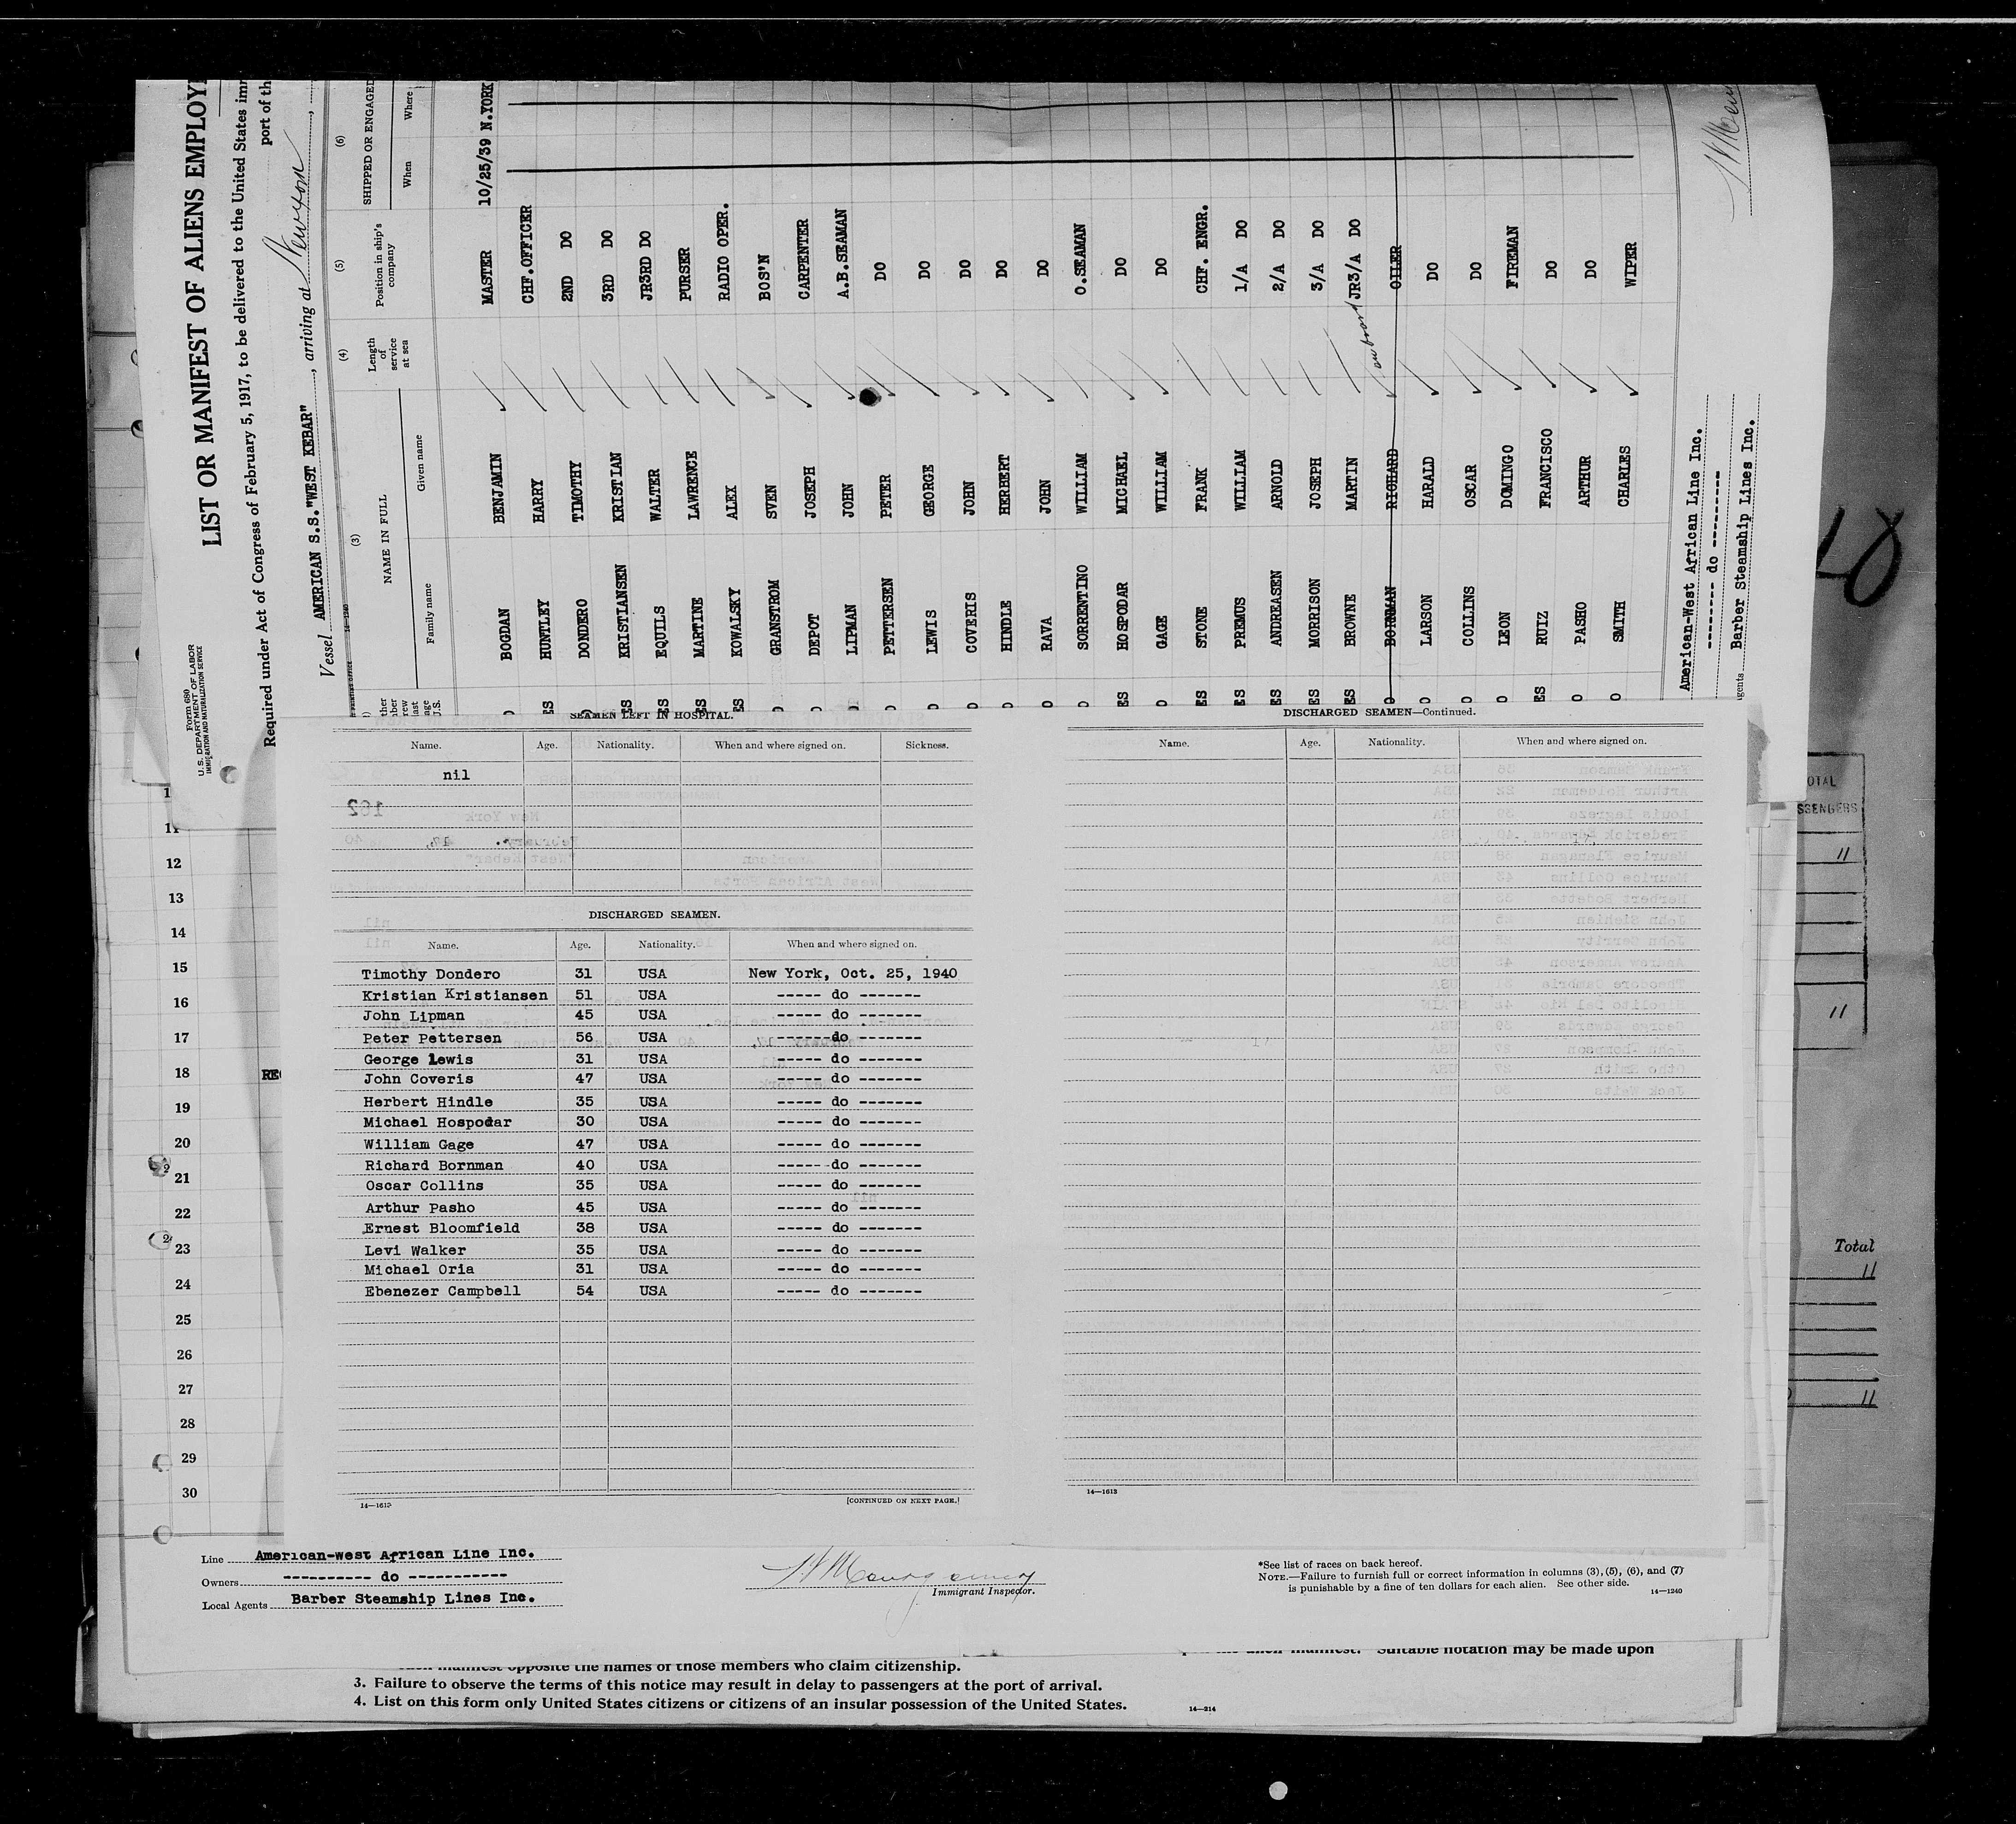 LIST OR MANIFEST OF ALIENS EMPLOY
Form 680
U. S. DEPARTMENT OF LABOR
IMMIGRATION AND NATURALIZATION SERVICE
Required under Act of Congress of February 5, 1917, to be delivered to the United States
port of th
Vessel AMERICAN S.S."WEST KEBAR", arriving at New York
14-1240
(3) (4) (5) (6)
NAME IN FULL
Family name Given name
Length of service at sea
Position in ship's company
SHIPPED OR ENGAGED
When Where
BOGDAN BENJAMIN MASTER 10/25/39 N.YORK
HUNTLEY HARRY CHF.OFFICER
DONDERO TIMOTHY 2ND DO
KRISTIANSEN KRISTIAN 3RD DO
EQUILS WALTER JR3RD DO
MARTINE LAWRENCE PURSER
KOWALSKY ALEX RADIO OPER.
GRANSTROM SVEN BOS'N
DEPOT JOSEPH CARPENTER
LIPMAN JOHN A.B.SEAMAN
PETTERSEN PETER DO
LEWIS GEORGE DO
COVERIS JOHN DO
HINDLE HERBERT DO
RAVA JOHN DO
SORRENTINO WILLIAM O.SEAMAN
HOSPODAR MICHAEL DO
GAGE WILLIAM DO
STONE FRANK CHF. ENGR.
PREMUS WILLIAM 1/A DO
ANDREASEN ARNOLD 2/A DO
MORRISON JOSEPH 3/A DO
BROWNE MARTIN JR3/A DO
BORNMAN RICHARD OILER
LARSON HARALD DO
COLLINS OSCAR DO
LEON DOMINGO FIREMAN
RUIZ FRANCISCO DO
PASHO ARTHUR DO
SMITH CHARLES WIPER
American-West African Line Inc.
-------- do ---------
Barber Steamship Lines Inc.
SEAMEN LEFT IN HOSPITAL.
Name. Age. Nationality. When and where signed on. Sickness.
nil
DISCHARGED SEAMEN.
Name. Age. Nationality. When and where signed on.
Timothy Dondero 31 USA New York, Oct. 25, 1940
Kristian Kristiansen 51 USA ----- do -------
John Lipman 45 USA ----- do -------
Peter Pettersen 56 USA ----- do -------
George lewis 31 USA ----- do -------
John Coveris 47 USA ----- do -------
Herbert Hindle 35 USA ----- do -------
Michael Hospodar 30 USA ----- do -------
William Gage 47 USA ----- do -------
Richard Bornman 40 USA ----- do -------
Oscar Collins 35 USA ----- do -------
Arthur Pasho 45 USA ----- do -------
Ernest Bloomfield 38 USA ----- do -------
Levi Walker 35 USA ----- do -------
Michael Oria 31 USA ----- do -------
Ebenezer Campbell 54 USA ----- do -------
14—1613
[CONTINUED ON NEXT PAGE.]
DISCHARGED SEAMEN—Continued.
Name. Age. Nationality. When and where signed on.
14—1613
11
12
13
14
15
16
17
18
19
20
21
22
23
24
25
26
27
28
29
30
OTAL
SSENGERS
11
11
Total
11
11
Line American-West African Line Inc.
Owners ---------- do -----------
Local Agents Barber Steamship Lines Inc.
Immigrant Inspector.
*See list of races on back hereof.
NOTE.—Failure to furnish full or correct information in columns (3), (5), (6), and (7)
is punishable by a fine of ten dollars for each alien. See other side.
14—1240
Suitable notation may be made upon
opposite the names of those members who claim citizenship.
3. Failure to observe the terms of this notice may result in delay to passengers at the port of arrival.
4. List on this form only United States citizens or citizens of an insular possession of the United States.
14—214